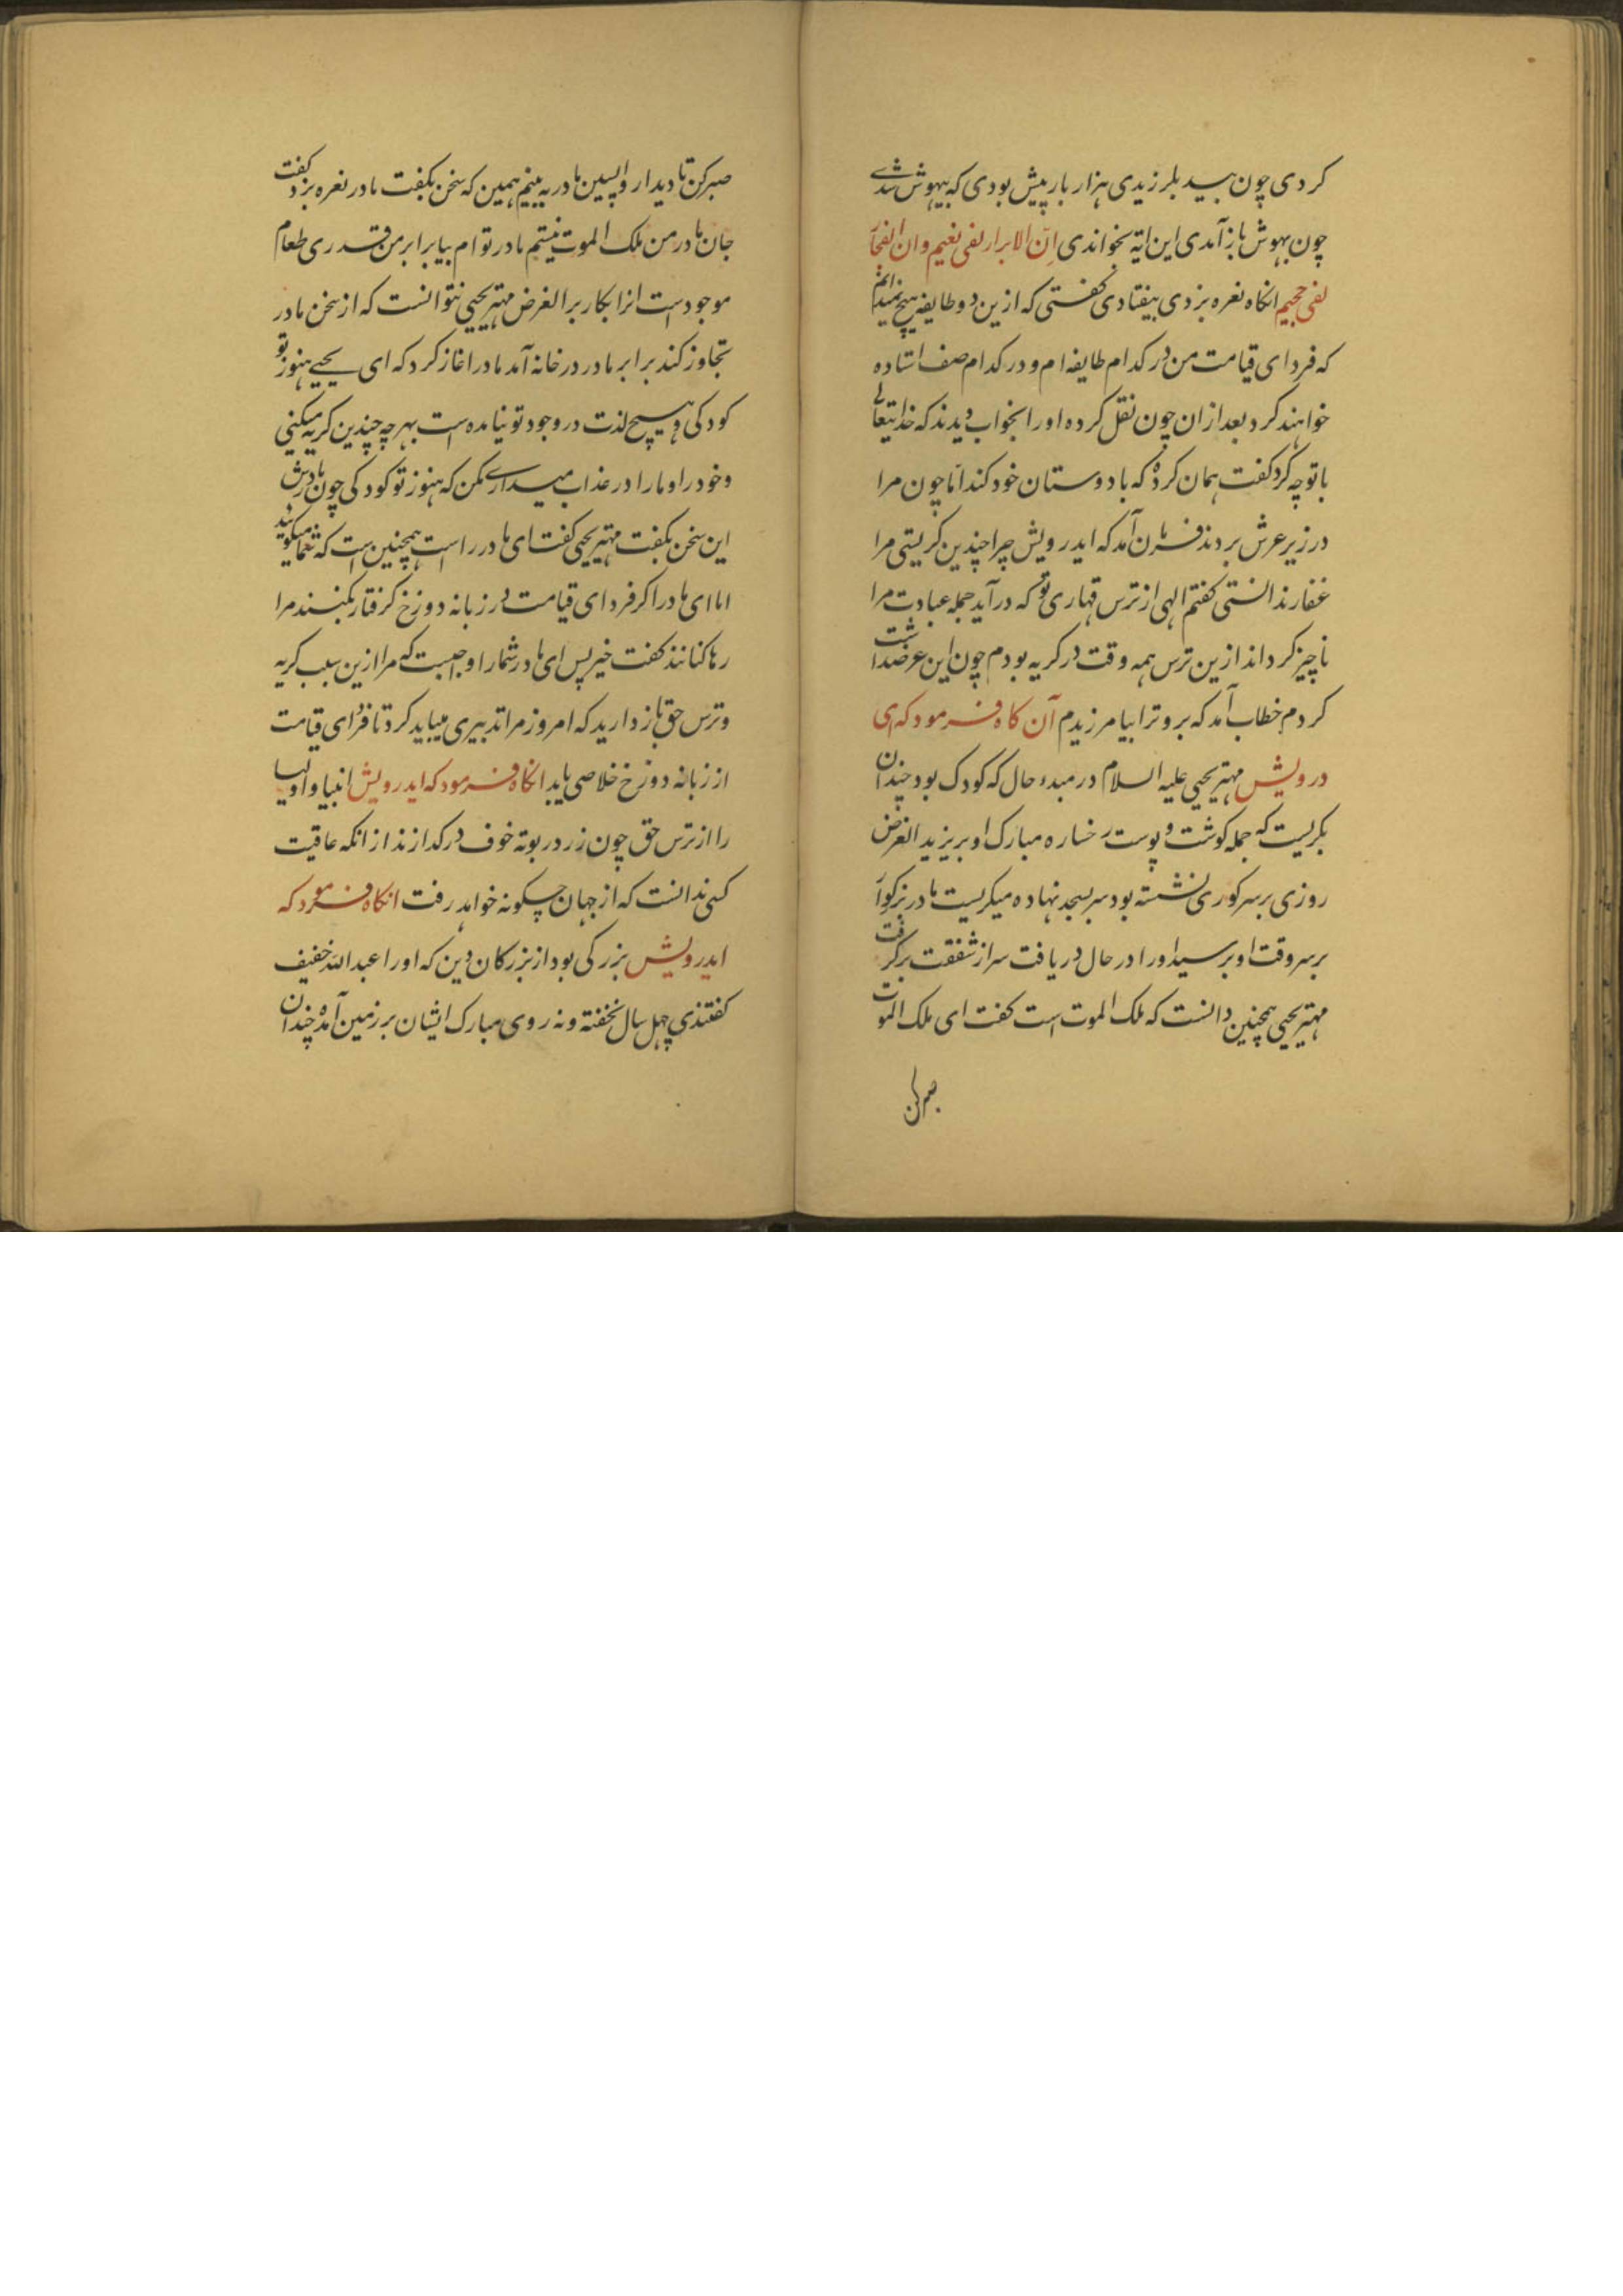 کردی چون بید بلرزیدی هزار بار پیش بودی که بیهوش شدے
چون بهوش باز آمدی این ایه بخواندی اِنّ الابرار لفی نعیم وان الفجّار
لفی جحیم انکاه نعره بزدی بیفتادی کفتی که ازین دو طایفه هیچ نمیدانم
که فردای قیامت من در کدام طایفه ام و در کدام صف استاده
خواهند کرد بعد ازان چون نقل کرده او را بخواب دیدند که خدایتعالی
با تو چه کرد کفت همان کرد که با دوستان خود کند امّا چون مرا
در زیر عرش بردند فرمان آمد که ایدرویش چرا چندین کریستی مرا
غفار ندانستی کفتم الهی از ترس قهاری تو که درآید جمله عبادت مرا
ناچیز کرداند ازین ترس همه وقت در کریه بودم چون این عرضداشت
کردم خطاب آمد که برو ترا بیامرزیدم آن کاه فرمود که ای
درویش مهتر یحیی علیه السلام در مبدء حال که کودک بود چندان
بکریست که جمله کوشت و پوست رخساره مبارک او بریزید الغرض
روزی بر سر کوری نشسته بود سر بسجد نهاده میکریست مادر بزرکوار
بر سر وقت او برسید او را در حال دریافت سر از شفقت برکرفت
مهتر یحیی همچنین دانست که ملک الموت است کفت ای ملک الموت
صبر کن
صبر کن تا دیدار واپسین مادر به بینم همین که سخن بکفت مادر نعره بزد کفت
جان مادر من ملک الموت نیستم مادر توام بیا برابر من قدری طعام
موجود است انرا بکار بر الغرض مهتر یحیی نتوانست که از سخن مادر
تجاوز کند برابر مادر در خانه آمد مادر اغاز کرد که ای یحیی هنوز تو
کودکی و هیچ لذت در وجود تو نیامده است بهر چه چندین کریه میکنی
و خود را و ما را در عذاب میداری مکن که هنوز تو کودکی چون مادرش
این سخن بکفت مهتر یحیی کفت ای مادر راست همچنین است که شما میکویید
اما ای مادر اکر فردای قیامت در زبانه دوزخ کرفتار بکنند مرا
رها کنانند کفت خیر پس ای مادر شما را واجبست که مرا ازین سبب کریه
و ترس حق باز دارید که امروز مرا تدبیری میباید کرد تا فردای قیامت
از زبانه دوزخ خلاصی یابد انکاه فرمود که ایدرویش انبیا و اولیا
را از ترس حق چون زر در بوته خوف در کدازند از انکه عاقبت
کسی ندانست که از جهان چکونه خواهد رفت انکاه فرمود که
ایدرویش بزرکی بود از بزرکان دین که او را عبدالله خفیف
کفتندی چهل سال نخفته و نه روی مبارک ایشان بر زمین آمده چندان